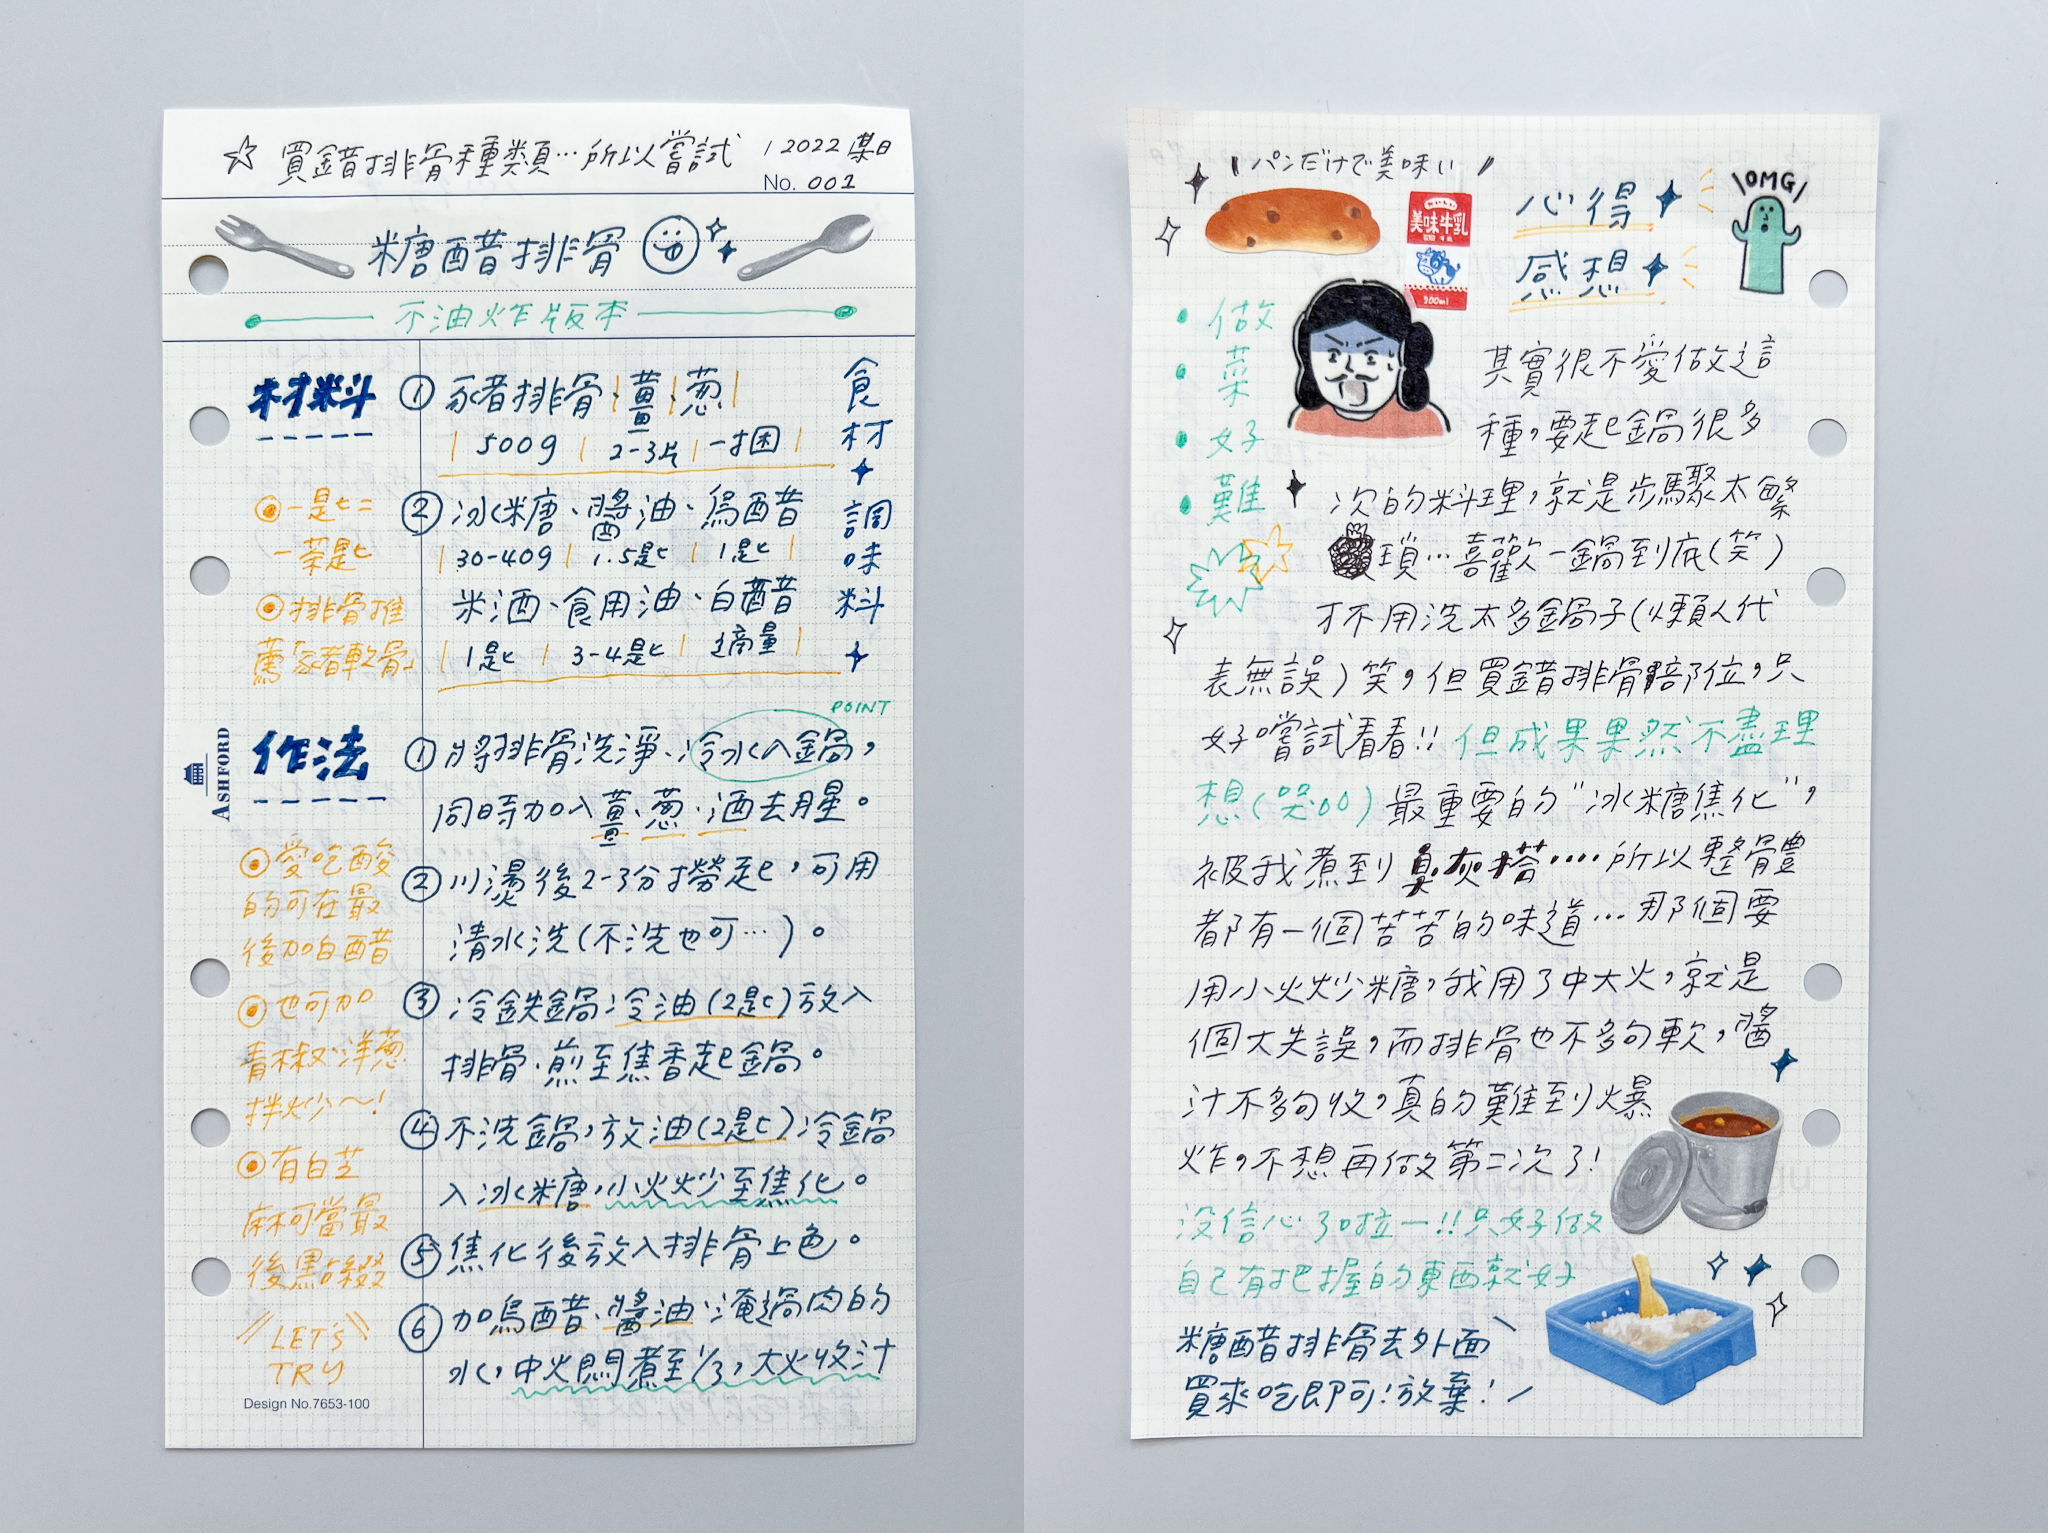 ☆ 買錯排骨種類…所以嘗試
2022 某日
No. 001
糖醋排骨
不油炸版本
材料
① 豬排骨、薑、葱
500g 2-3片 一捆
② 冰糖、醬油、烏醋
30-40g 1.5匙 1匙
米酒、食用油、白醋
1匙 3-4匙 適量
食材✦調味料✦
一匙=
一茶匙
排骨推
薦「豬軟骨」
ASHFORD
作法
POINT
① 將排骨洗淨、冷水入鍋,
同時加入薑、葱、酒去腥。
② 川燙後2-3分撈起,可用
清水洗(不洗也可…)。
③ 冷鉄鍋冷油(2匙)放入
排骨、煎至焦香起鍋。
④ 不洗鍋,放油(2匙)冷鍋
入冰糖,小火炒至焦化。
⑤ 焦化後放入排骨上色。
⑥ 加烏醋、醬油、淹過肉的
水,中火悶煮至1/3,大火收汁
愛吃酸
的可在最
後加白醋
也可加
青椒、洋葱
拌炒~!
有白芝
麻可當最
後點綴
LET'S
TRY
Design No.7653-100
パンだけで美味い
美味牛乳
200ml
心得
感想
\OMG/
做菜好難
其實很不愛做這
種,要起鍋很多
次的料理,就是步驟太繁
瑣…喜歡一鍋到底(笑)
才不用洗太多鍋子(懶人代
表無誤)笑,但買錯排骨部位,只
好嚐試看看!!但成果果然不盡理
想(哭00)最重要的"冰糖焦化",
被我煮到臭灰搭····所以整體
都有一個苦苦的味道…那個要
用小火炒糖,我用了中大火,就是
個大失誤,而排骨也不多句軟,醬
汁不多句收,真的難到爆
炸,不想再做第二次了!
沒信心了啦一!!只好做
自己有把握的東西就好
糖醋排骨去外面
買來吃即可!放棄!